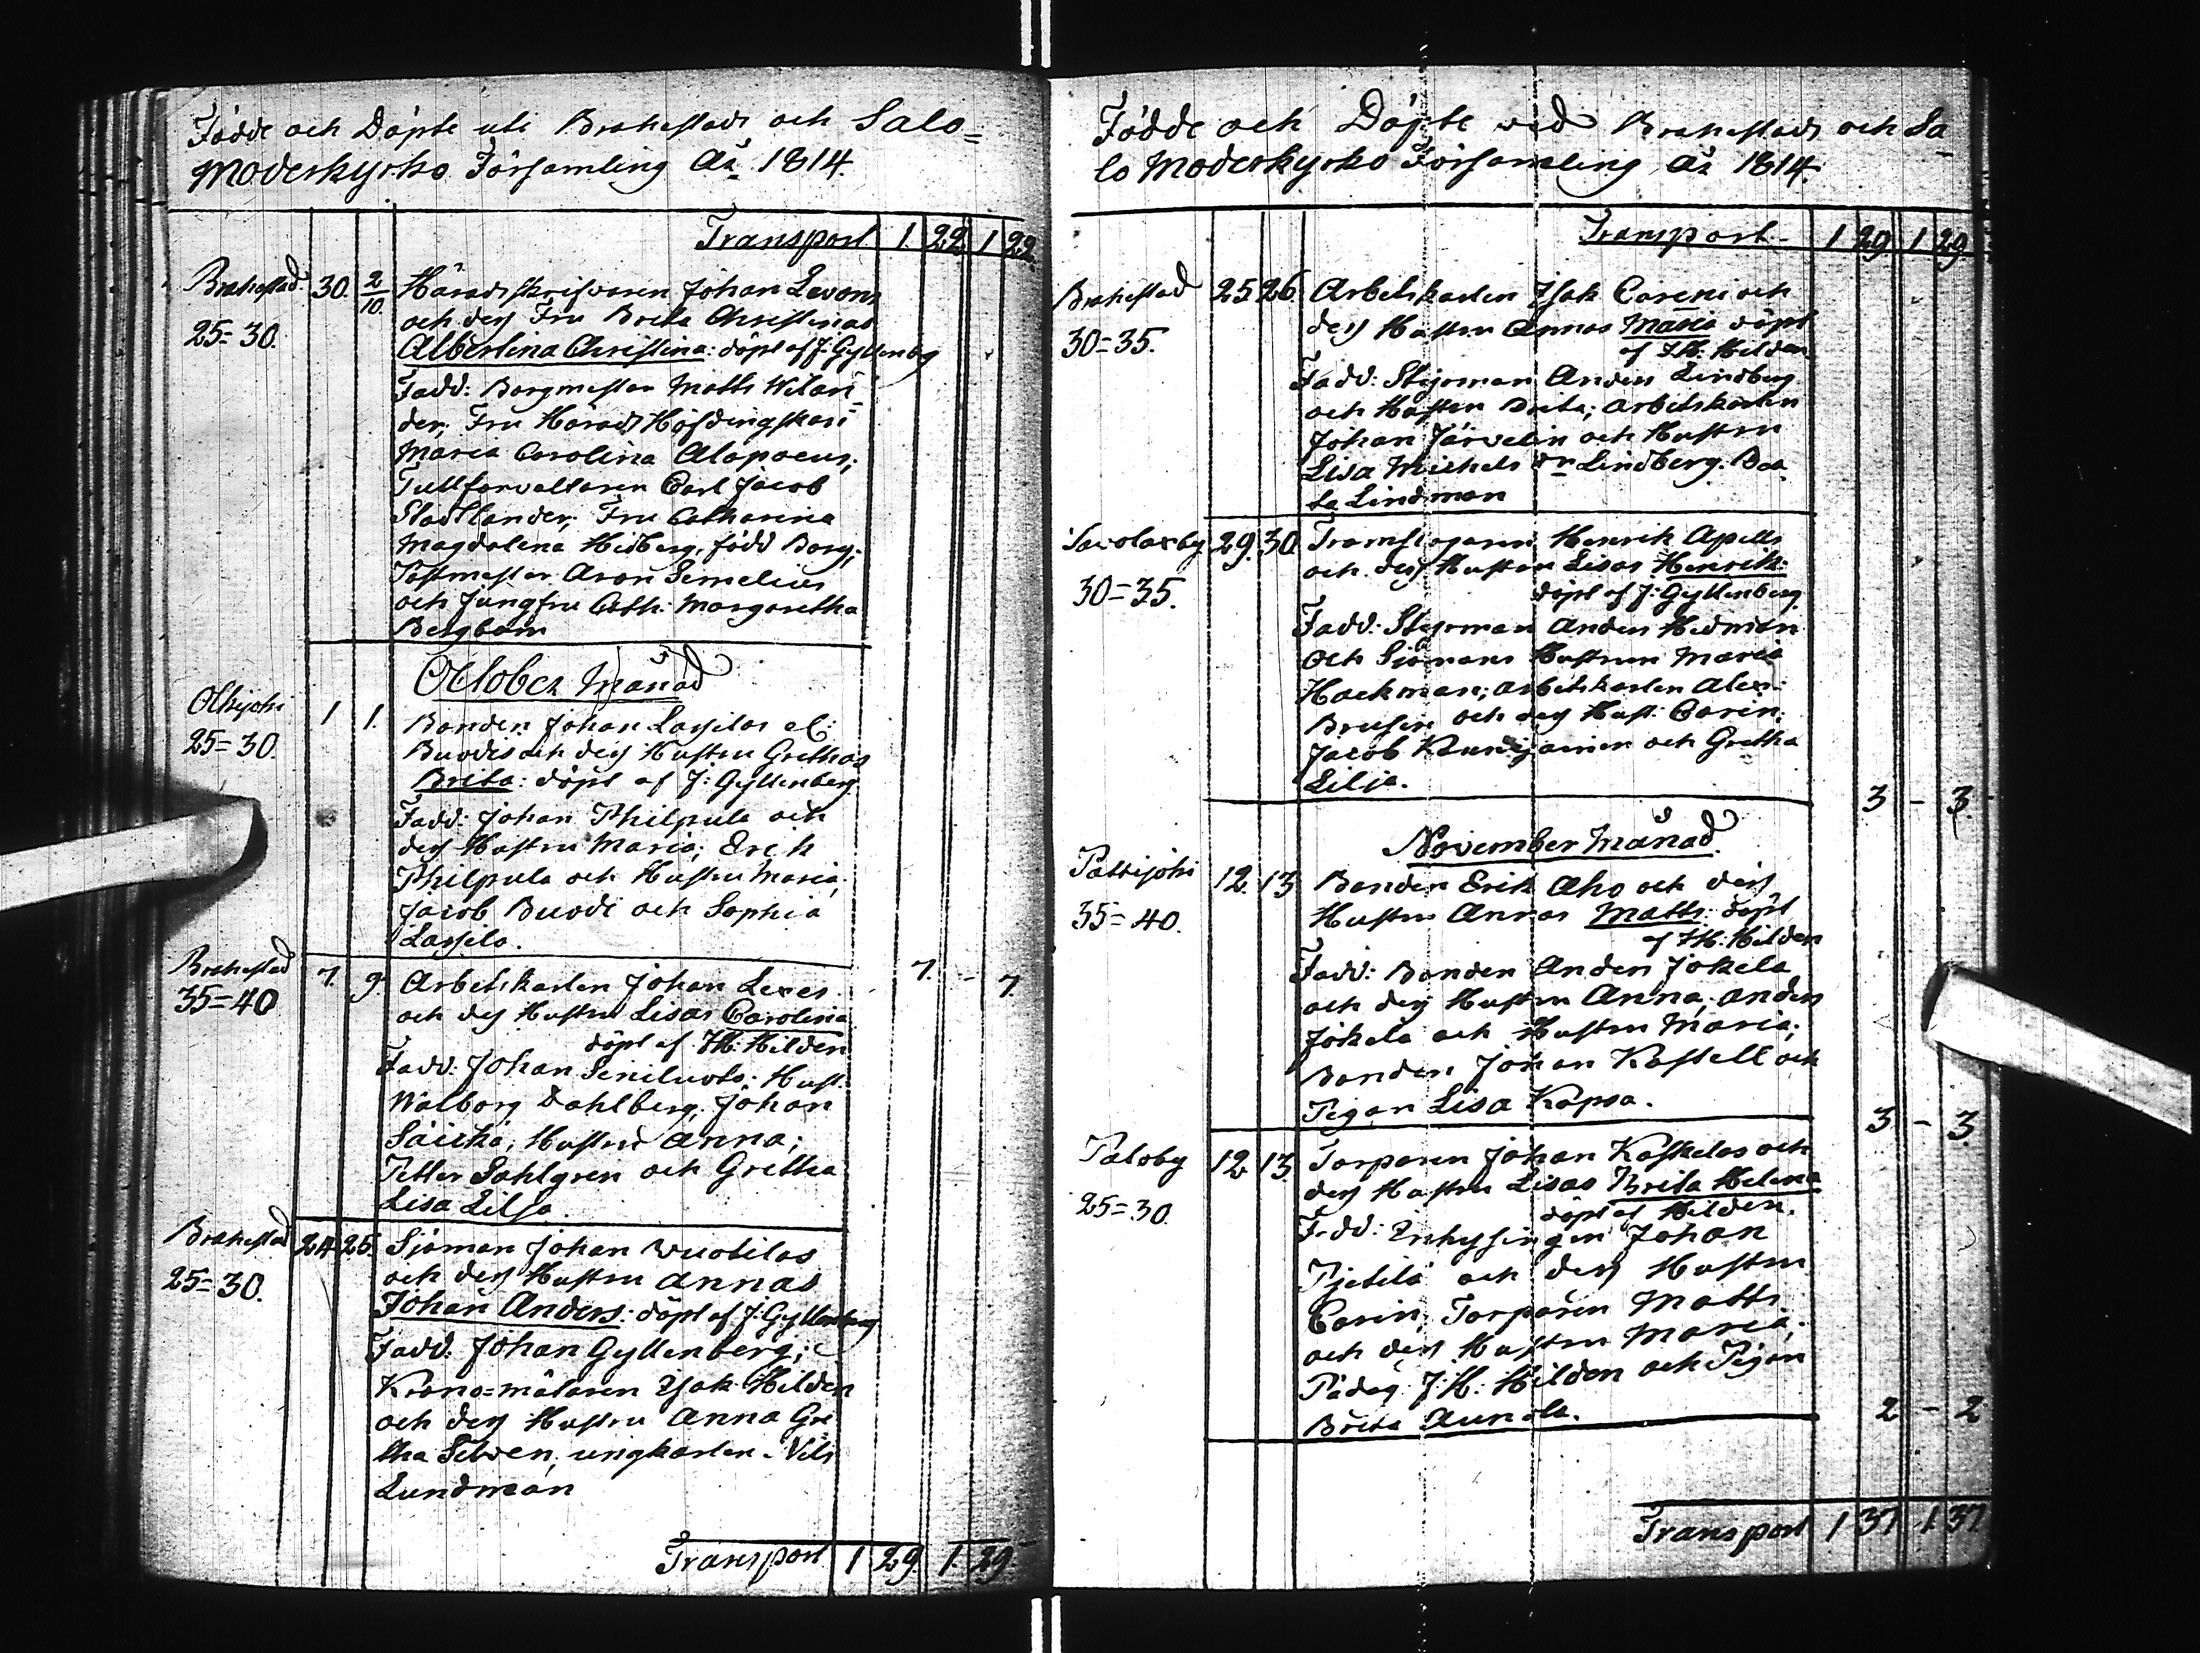 Födde och Döpte uti Brahestads och Salo=
Moderkyrko Församling År 1814.
Transport 1 22 1 22.
Brahestad 30. 2/10. Häradsskrifvaren Johan Levons
25=30. och dess Fru Brita Christinas
Albertina Christina: döpt af J: Gyllenbg
Fadd: Borgmestar Matts Wilan=
der, Fru Härads Höfdingskan
Maria Carolina Alopaeus;
Tullforvaltaren Carl Jacob
Stadtlander, Fru Catharina
Magdalena Hedberg, född Borg;
Postmestar Aron Semelius
och Jungfru Cath: Margaretha
Bergbom
October Månad
Olkijoki 1 1. Bonden Johan Lassilas el:
25=30. Buodis och dess Hustru Grethas
Brita: döpt af J: Gyllenberg
Fadd: Johan Philpula och
dess Hustru Maria; Erik
Philpula och Hustru Maria,
Jacob Buodi och Sophia
Lassila.
Brahestad 7. 9. Arbetskarlen Johan Lexes 7. - 7.
35=40 och dess Hustru Lisas Carolina
döpt af JH: Hilden
Fadd: Johan Seniluoto; Hust:
Walborg Dahlberg, Johan
Säickä, Hustru Anna;
Petter Sahlgren och Gretha
Lisa Lilja.
Brahestad 24 25. Sjöman Johan Wuotilas
25=30. och dess Hustru Annas
Johan Anders: döpt af J: Gyllenberg
Fadd. Johan Gyllenberg;
Krono=målaren Isak Hilden
och dess Hustru Anna Gre
tha Selven, ungkarlen Nils
Lundman
Transport 1 29 1. 29.
Födde och Döpte vid Brahestads och Sa
lo Moderkyrko Församling År 1814.
Transport- 1 29 1 29.
Brahestad 25 26. Arbetskarlen Isak Careni och
30=35. dess Hustru Annas Maria döpt
af JH: Hilden
Fadd: Styrman Anders Lindberg
och Hustru Brita; arbetskarlen
Johan Järvelin och Hustru
Lisa Michels dr Lindberg. Bea
ta Lindman
Savolaxby 29. 30 Framsiogaren Henrik Apells
30=35. och dess Hustru Lisas Henrik:
döpt af J: Gyllenberg.
Fadd: Styrman Anders Hedman
och Sjömans Hustrun Maria
Hackman; arbetskarlen Alex:
Brusin och dess Hust: Carin;
Jacob och Gretha
Lilja.
3 - 3.
November Månad.
Pattijoki 12. 13 Bonden Erik Aho och dess
35=40. Hustru Annas Matts: döpt
af JH: Hilden
Fadd: Bonden Anders Jokela
och dess Hustru Anna; Anders
Jokela och Hustru Maria;
Bonden Johan Kastell och
Pigan Lisa Kapsa.
3 - 3.
Paloby 12 13. Torparen Johan Koskelas och
25=30. dess Hustru Lisas Brita Helena
döpt af Hilden.
Fadd: Inhysingen Johan
Pjetilä och dess Hustru
Carin; Torparen Matts
och dess Hustru Maria;
Pädag: J:H: Hilden och Pigan
Brita Aunola. 2 - 2
Transport 1 37 1. 37.